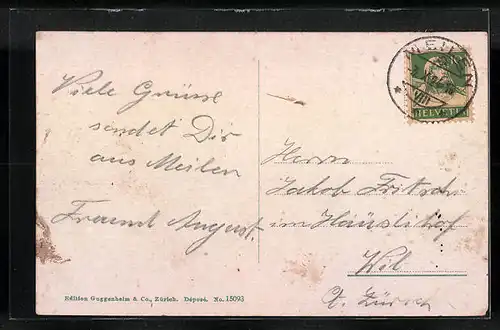 Viele Grüsse
sendet Dir
aus Meilen
Freund August.
MEILEN
VIII
HELVETIA
Herrn
Jakob Fritschi
im Häuslihof
Wil
Kt. Zürich
Edition Guggenheim & Co., Zürich. Déposé. No. 15093